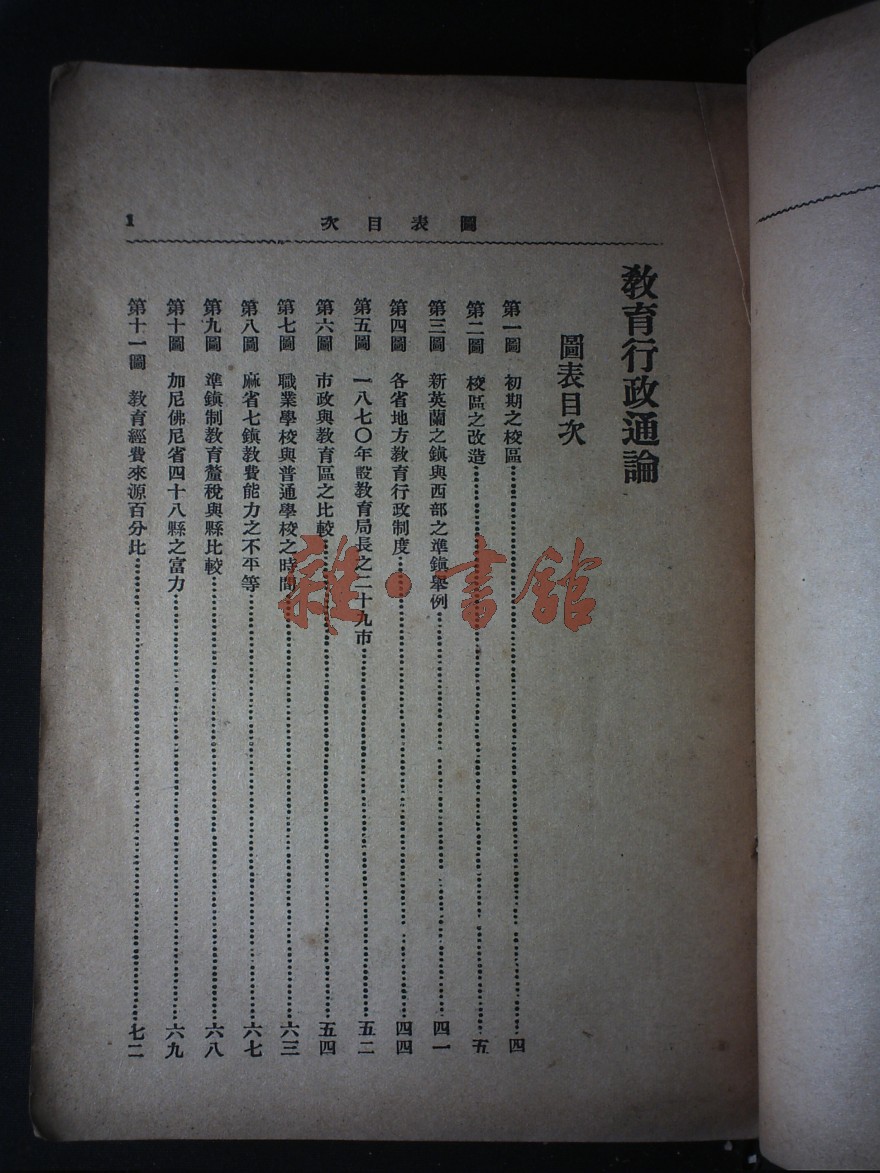 圖表目次
1
教育行政通論
圖表目次
第一圖　初期之校區……四
第二圖　校區之改造……五
第三圖　新英蘭之鎮與西部之準鎮舉例……四一
第四圖　各省地方教育行政制度……四四
第五圖　一八七〇年設教育局長之二十九市……五二
第六圖　市政與教育區之比較……五四
第七圖　職業學校與普通學校之時間……六三
第八圖　麻省七鎮教費能力之不平等……六七
第九圖　準鎮制教育釐稅與縣比較……六八
第十圖　加尼佛尼省四十八縣之富力……六九
第十一圖　教育經費來源百分比……七二
雜·書館